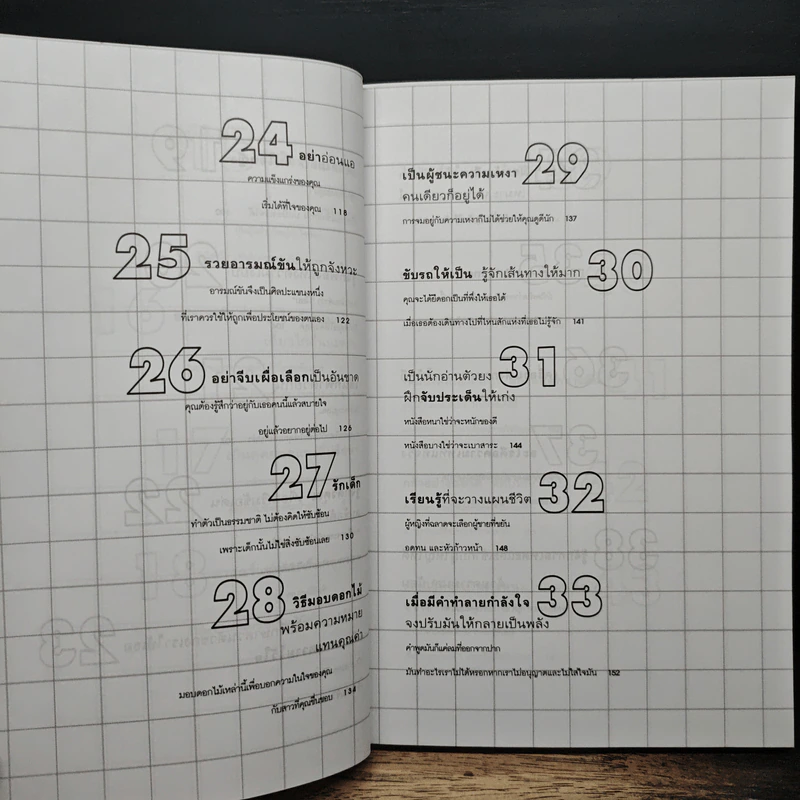 24 อย่าอ่อนแอ
ความแข็งแกร่งของคุณ
เริ่มได้ที่ใจของคุณ 118
25 รวยอารมณ์ขันให้ถูกจังหวะ
อารมณ์ขันจึงเป็นศิลปะแขนงหนึ่ง
ที่เราควรใช้ให้ถูกเพื่อประโยชน์ของตนเอง 122
26 อย่าจีบเผื่อเลือกเป็นอันขาด
คุณต้องรู้สึกว่าอยู่กับเธอคนนี้แล้วสบายใจ
อยู่แล้วอยากอยู่ต่อไป 126
27 รักเด็ก
ทำตัวเป็นธรรมชาติ ไม่ต้องคิดให้ซับซ้อน
เพราะเด็กนั้นไม่ใช่สิ่งซับซ้อนเลย 130
28 วิธีมอบดอกไม้
พร้อมความหมาย
แทนคุณค่า
มอบดอกไม้เหล่านี้เพื่อบอกความในใจของคุณ
กับสาวที่คุณชื่นชอบ 134
เป็นผู้ชนะความเหงา 29
คนเดียวก็อยู่ได้
การจมอยู่กับความเหงาก็ไม่ได้ช่วยให้คุณดูดีนัก 137
ขับรถให้เป็น รู้จักเส้นทางให้มาก 30
คุณจะได้ยืดอกเป็นที่พึ่งให้เธอได้
เมื่อเธอต้องเดินทางไปที่ไหนสักแห่งที่เธอไม่รู้จัก 141
เป็นนักอ่านตัวยง 31
ฝึกจับประเด็นให้เก่ง
หนังสือหนาใช่ว่าจะหนักของดี
หนังสือบางใช่ว่าจะเบาสาระ 144
เรียนรู้ที่จะวางแผนชีวิต 32
ผู้หญิงที่ฉลาดจะเลือกผู้ชายที่ขยัน
อดทน และหัวก้าวหน้า 148
เมื่อมีคำทำลายกำลังใจ 33
จงปรับมันให้กลายเป็นพลัง
คำพูดมันก็แค่ลมที่ออกจากปาก
มันทำอะไรเราไม่ได้หรอกหากเราไม่อนุญาตและไม่ใส่ใจมัน 152